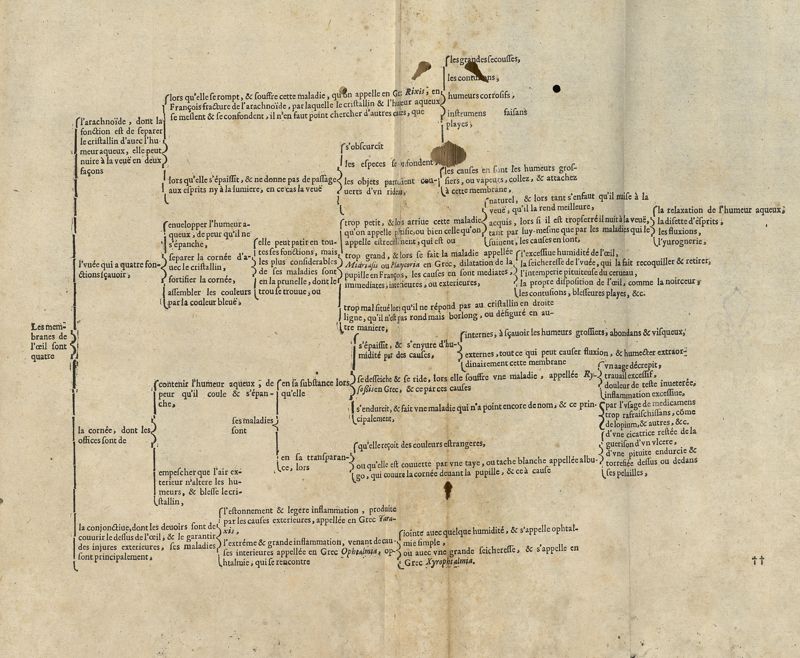 Les mem-
branes de
l'œil sont
quatre
l'arachnoïde, dont la
fonction est de separer
le cristallin d'auec l'hu-
meur aqueux, elle peut
nuire à la veuë en deux
façons
lors qu'elle se rompt, & souffre cette maladie, qu'on appelle en Gr. Rixis; en
François fracture de l'arachnoïde, par laquelle le cristallin & l'hueur aqueux
se meslent & se confondent, il n'en faut point chercher d'autres causes, que
les grandes secousses,
les contusions,
humeurs corrosifs,
instrumens faisans
playes;
lors qu'elle s'épaissit, & ne donne pas de passage
aux esprits ny à la lumiere, en ce cas la veuë
s'obscurcit
les especes se confondent,
les objets paroissent cou-
uerts d'vn rideau,
les causes en sont les humeurs gros-
siers, ou vapeurs, collez, & attachez
à cette membrane,
l'vuée qui a quatre fon-
ctions sçauoir,
enuelopper l'humeur a-
queux, de peur qu'il ne
s'épanche,
separer la cornée d'a-
uec le cristallin,
fortifier la cornée,
assembler les couleurs
par la couleur bleuë,
elle peut patir en tou-
tes ses fonctions, mais
les plus considerables
de ses maladies sont
en la prunelle, dont le
trou se trouue, ou
trop petit, & lors arriue cette maladie
qu'on appelle phtisie, ou bien celle qu'on
appelle estrecissement, qui est ou
naturel, & lors tant s'enfaut qu'il nuise à la
veuë, qu'il la rend meilleure,
acquis, lors si il est trop serré il nuit à la veuë,
tant par luy-mesme que par les maladies qui le
suiuent, les causes en sont,
la relaxation de l'humeur aqueux;
la disette d'esprits;
les fluxions,
l'yurognerie,
trop grand, & lors se fait la maladie appellée
Midriasis ou Playoria en Grec, dilatation de la
pupille en François, les causes en sont mediates,
immediates, interieures, ou exterieures,
l'excessiue humidité de l'œil,
la seicheresse de l'vuée, qui la fait recoquiller & retirer,
l'intemperie pituiteuse du cerueau,
la propre disposition de l'œil, comme la noirceur;
les contusions, blesseures playes, &c.
trop mal situé lors qu'il ne répond pas au cristallin en droite
ligne, qu'il n'est pas rond mais borlong, ou défiguré en au-
tre maniere,
la cornée, dont les
offices sont de
contenir l'humeur aqueux; de
peur qu'il coule & s'épan-
che,
empescher que l'air ex-
terieur n'altere les hu-
meurs, & blesse le cri-
stallin,
ses maladies
sont
en sa substance lors
qu'elle
s'épaissit, & s'enyure d'hu-
midité par des causes,
internes, à sçauoir les humeurs grossiers, abondans & visqueux,
externes, tout ce qui peut causer fluxion, & humecter extraor-
dinairement cette membrane
se desseiche & se ride, lors elle souffre vne maladie, appellée Ry-
sosis en Grec, & ce par ces causes
vn aage décrepit,
trauail excessif,
douleur de teste inueterée,
inflammation excessiue,
s'endurcit, & fait vne maladie qui n'a point encore de nom, & ce prin-
cipalement,
par l'vsage de medicamens
trop rafraischissans, cóme
de l'opium, & autres, &c.
en sa transparan-
ce, lors
qu'elle reçoit des couleurs estrangeres,
ou qu'elle est couuerte par vne taye, ou tache blanche appellée albu-
go, qui couure la cornée deuant la pupille, & ce à cause
d'vne cicatrice restée de la
guerison d'vn vlcere,
d'vne pituite endurcie &
torrefiée dessus ou dedans
ses pelailles,
la conjonctiue, dont les deuoirs sont de
couurir le dessus de l'œil, & le garantir
des injures exterieures, ses maladies
sont principalement,
l'estonnement & legere inflammation, produite
par les causes exterieures, appellée en Grec Tara-
xis,
l'extréme & grande inflammation, venant de cau-
ses interieures appellée en Grec Ophtalmia, op-
htalmie, qui se rencontre
jointe auec quelque humidité, & s'appelle ophtal-
mie simple,
ou auec vne grande seicheresse, & s'appelle en
Grec Xyrophtalmia.
††